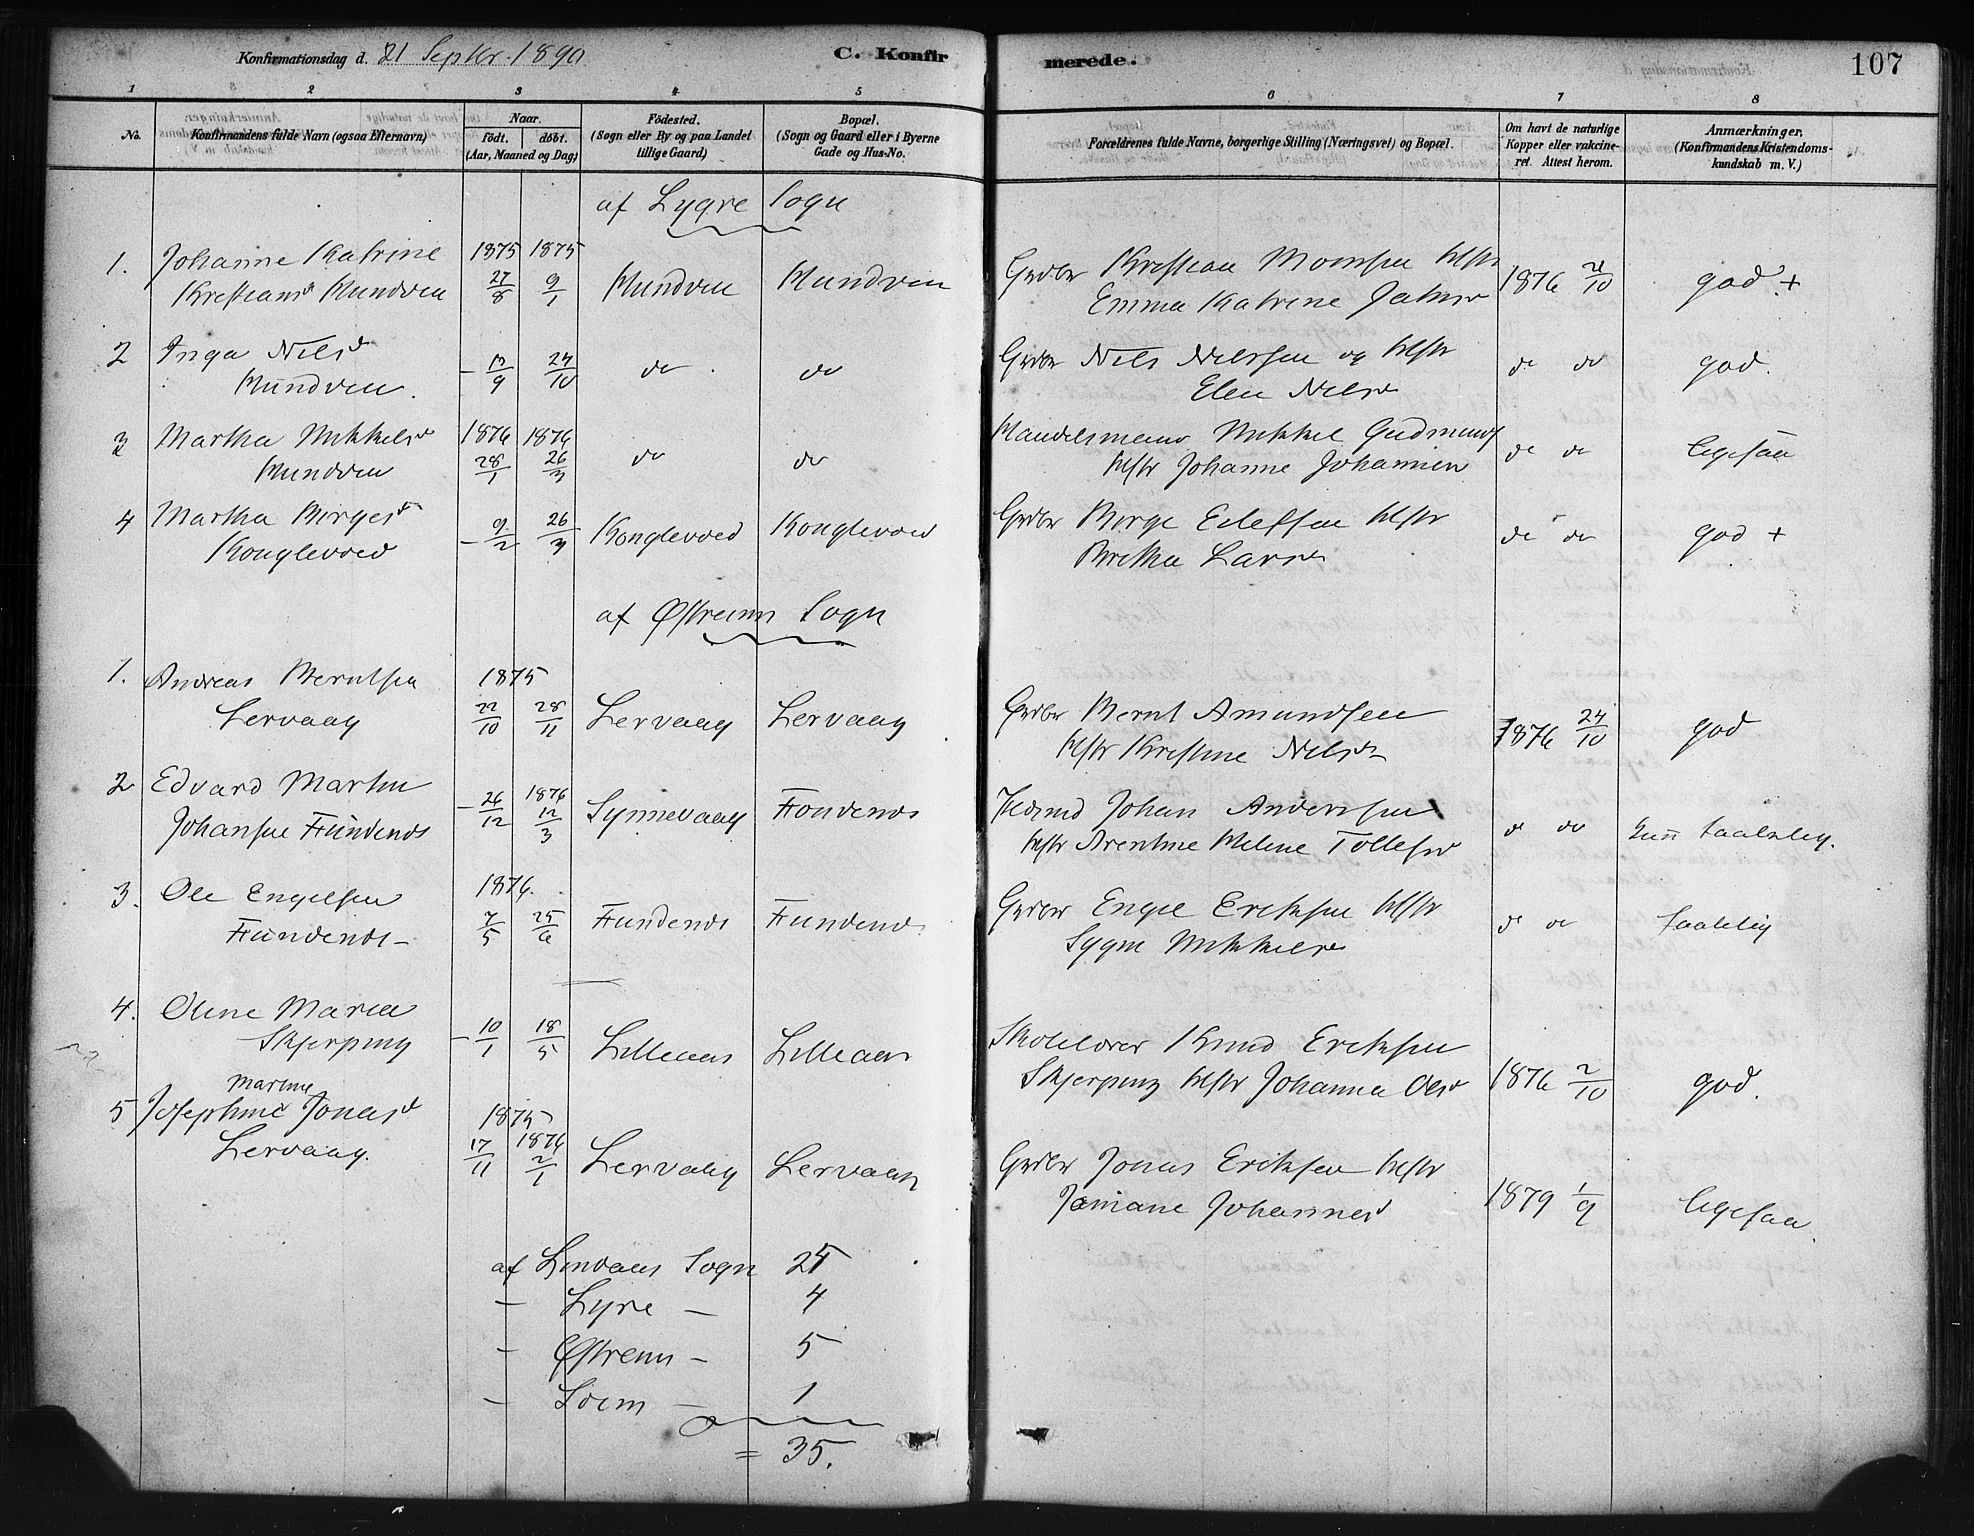 Konfirmationsdag d. 21 Septbr. 1890
C. Konfirmerede.
107
1 2 3 4 5 6 7 8
No.
Konfirmandens fulde Navn (ogsaa Efternavn)
Naar.
födt. döbt.
(Aar, Maaned og Dag)
Födested.
(Sogn eller By og paa Landet
tillige Gaard)
Bopæl.
(Sogn og Gaard eller i Byerne
Gade og Hus-No.
Forældrenes fulde Navne, borgerlige Stilling (Næringsvei) og Bopæl.
Om havt de naturlige
Kopper eller vakcine-
ret. Attest herom.
Anmærkninger.
(Konfirmandens Kristendoms-
kundskab m. V.)
af Lygre Sogn
1. Johanne Katrine 1875 1875
Kristiansd Hundven 27/8 9/1 Hundven Hundven
Grdbr Kristian Monsen Hstr
Emma Katrine Jakobsd 1876 2/10 god +
2 Inga Nilsd
Hundven. - 13/9 24/10 do do
Grdbr Nils Nilssen og Hstr
Elen Nilsd do do god.
3 Martha Mikkelsd 1876 1876
Hundven 28/1 26/3 do do
Handelsmand Mikkel Gudmunds
Hstr Johanne Johannesd do do ligesaa
4 Martha Børgesd
Konglevold - 9/2 26/3 Konglevold Konglevold
Grdbr Børge Eilefsen Hstr
Brithe Larsd do do god +
af Østreim Sogn
1. Andreas Berntsen 1875
Lervaag 22/10 28/11 Lervaag Lervaag
Grdbr Bernt Amundsen
Hstr Kristine Nilsd 1876 24/10 god
2 Edvard Martin 1876
Johansen Fundenes - 26/12 12/3 Synnevaag Fondenes
Johan Anderssen
Hstr Arentine Meline Tollefsd do do kun taalelig.
3. Ole Engelsen 1876.
Fundenes - 7/5 25/6 Fundenes Fundenes
Grdbr Engel Eriksen Hstr
Sygni Mikkelsd do do taalelig
4. Oline Maria
Skjerping - 10/1 18/5 Lilleaas Lilleaas
Skolelærer Knud Eriksen
Skjerping Hstr Johanna Olsd 1876 2/10 god.
Martine
5 Josephine Jonasd 1875 1876
Lervaag. 17/11 2/1 Lervaag Lervaag
Grdbr Jonas Eriksen Hstr
Jamiane Johannesd 1879 1/9 ligesaa.
af Lindaas Sogn 25
- Lyre - 4
- Østrem - 5
- Seim - 1
= 35.